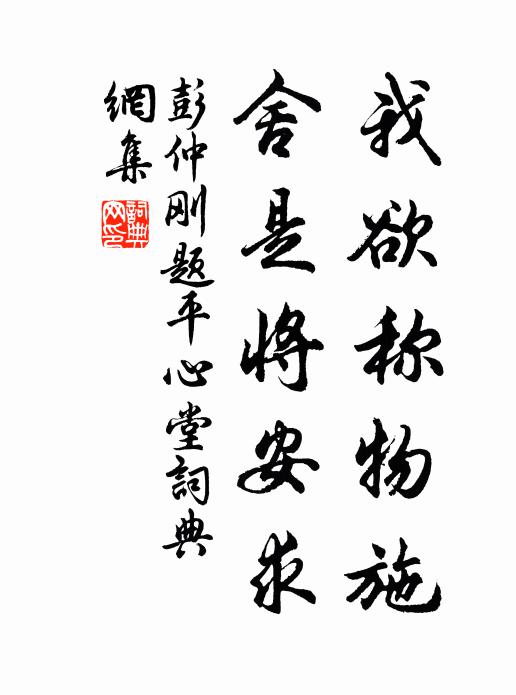 我欲称物施
舍是将安求
彭仲刚题平心堂詞典
網集
詞典網印